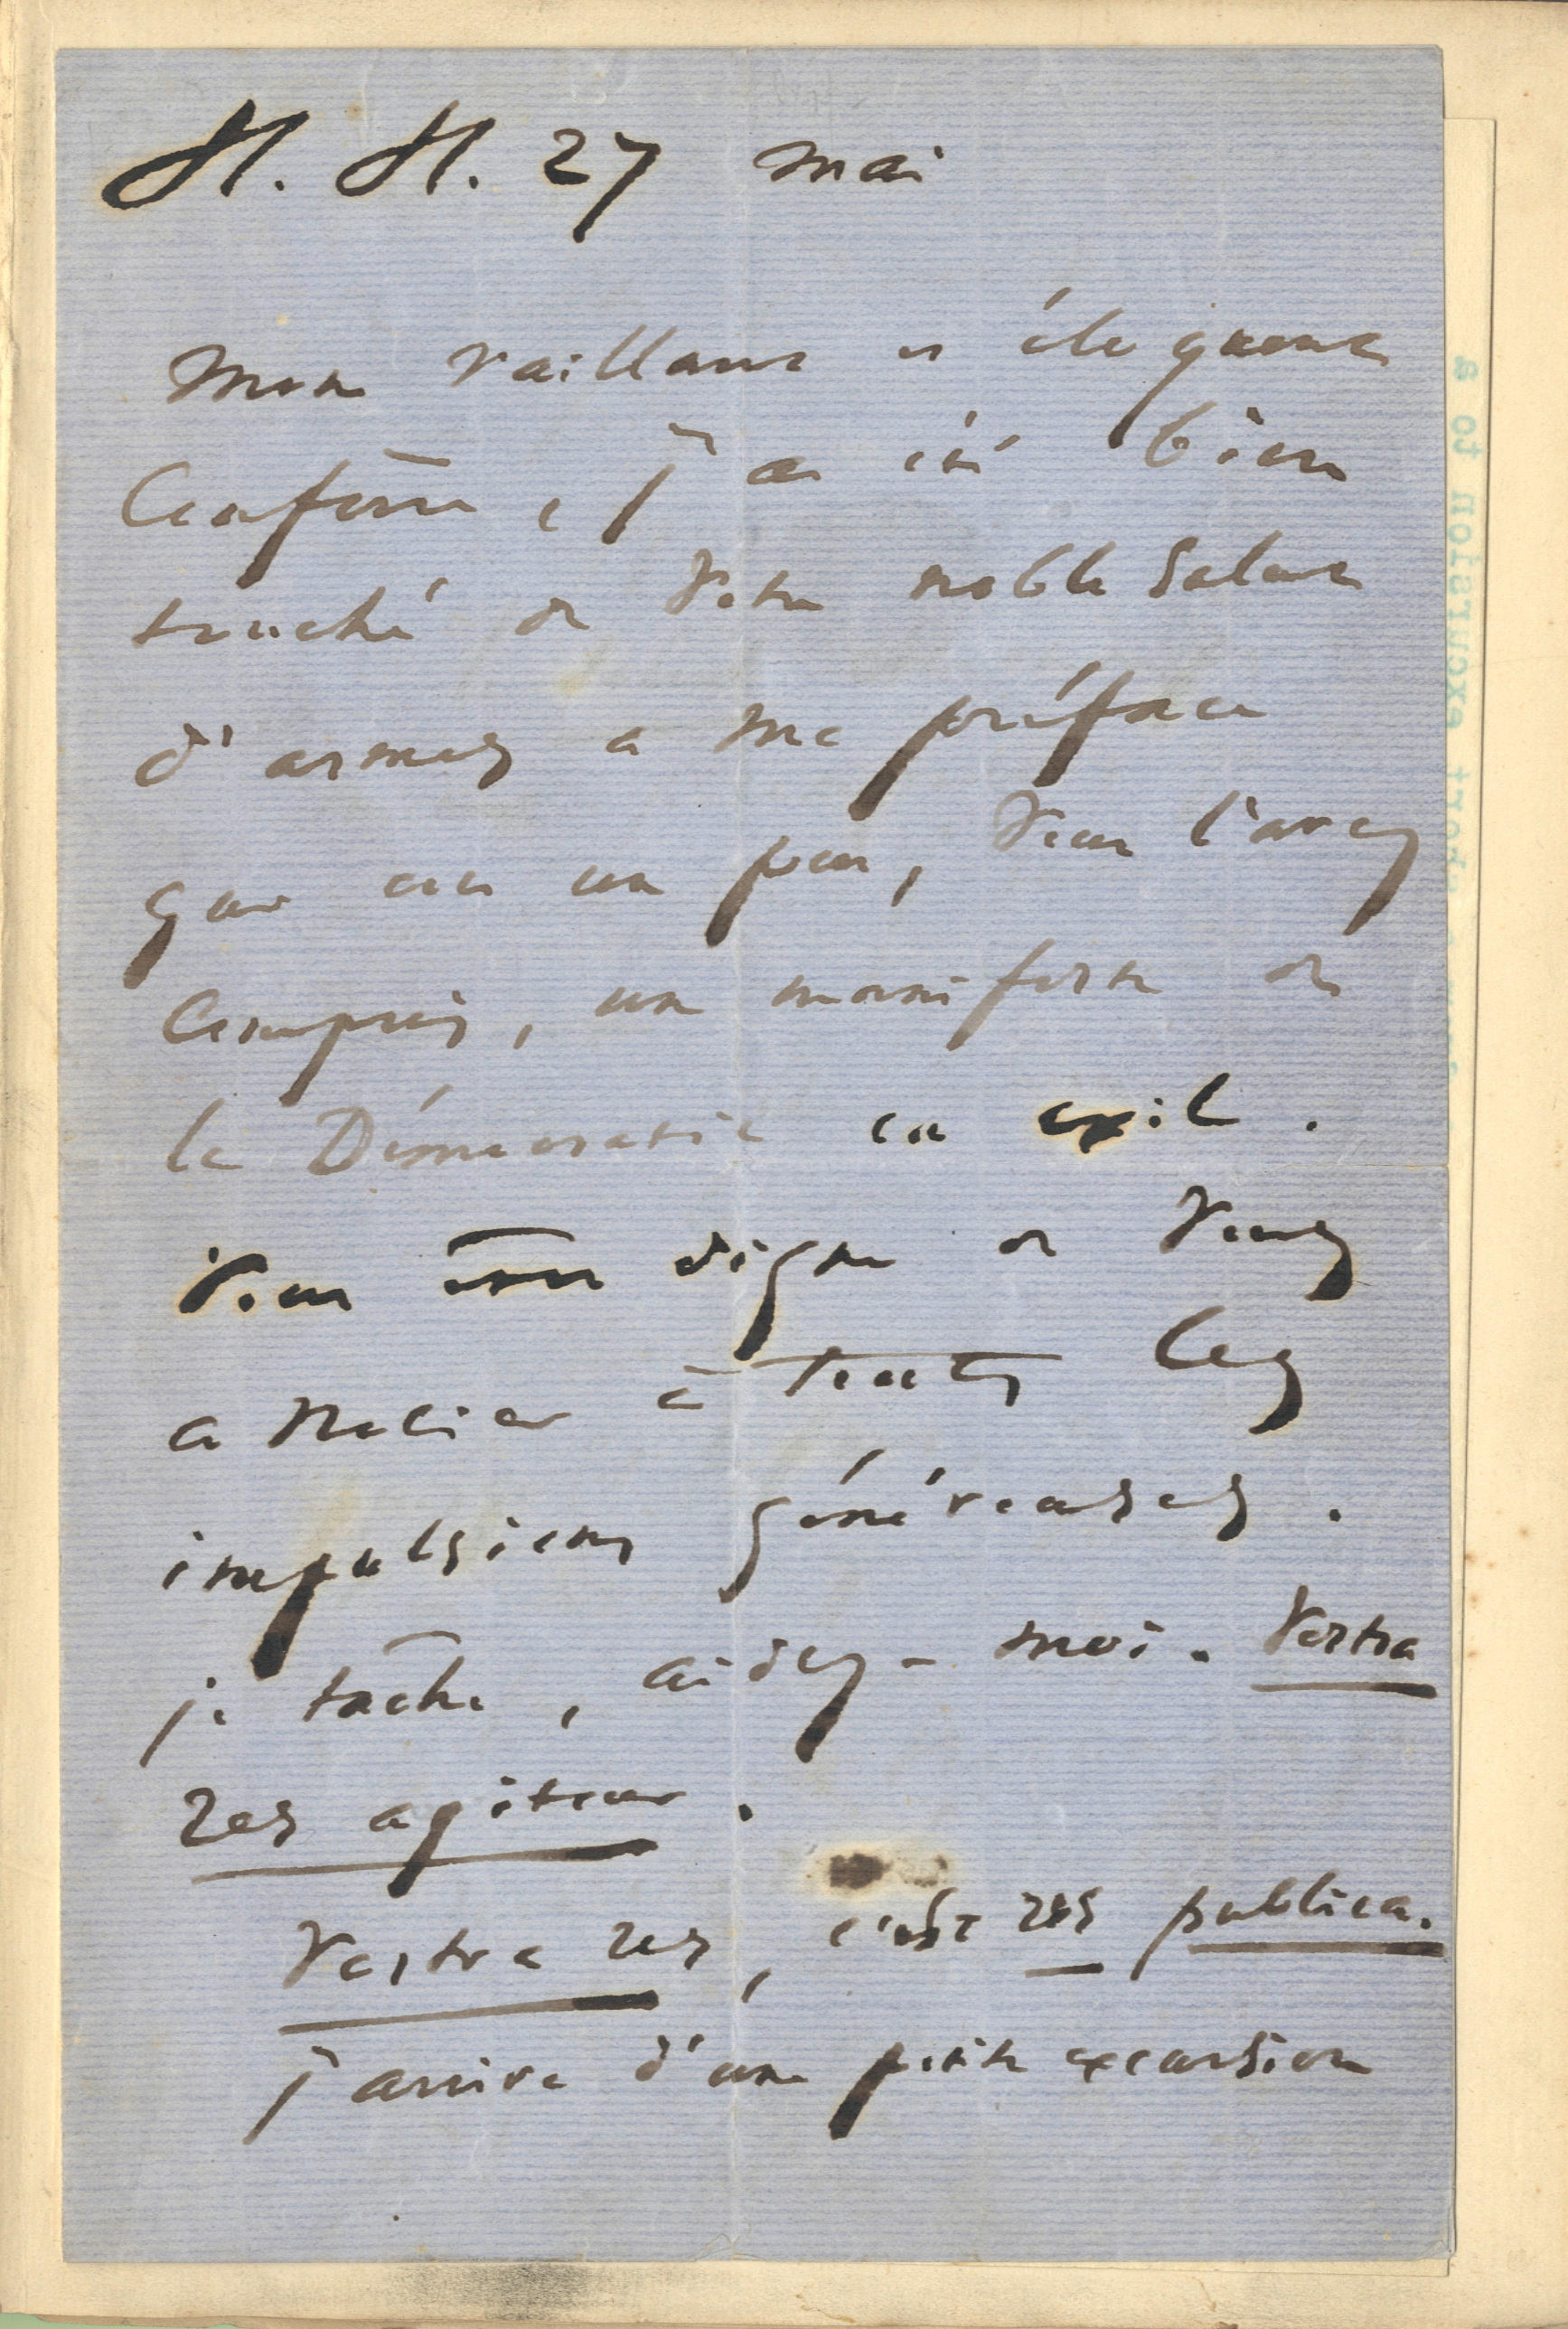 H. H. 27 mai
Mon vaillant et éloquent
Confrère, j'ai été bien
touché de votre noble salut
d'armes à ma préface
qui est un peu, vous l'avez
compris, un manifeste de
la Démocratie en exil.
Vous êtes digne de vous
à toutes les
impulsions généreuses.
je tâche, aidez-moi. Vestra
res agitur.
Vestra res, c'est res publica.
j'arrive d'une petite excursion